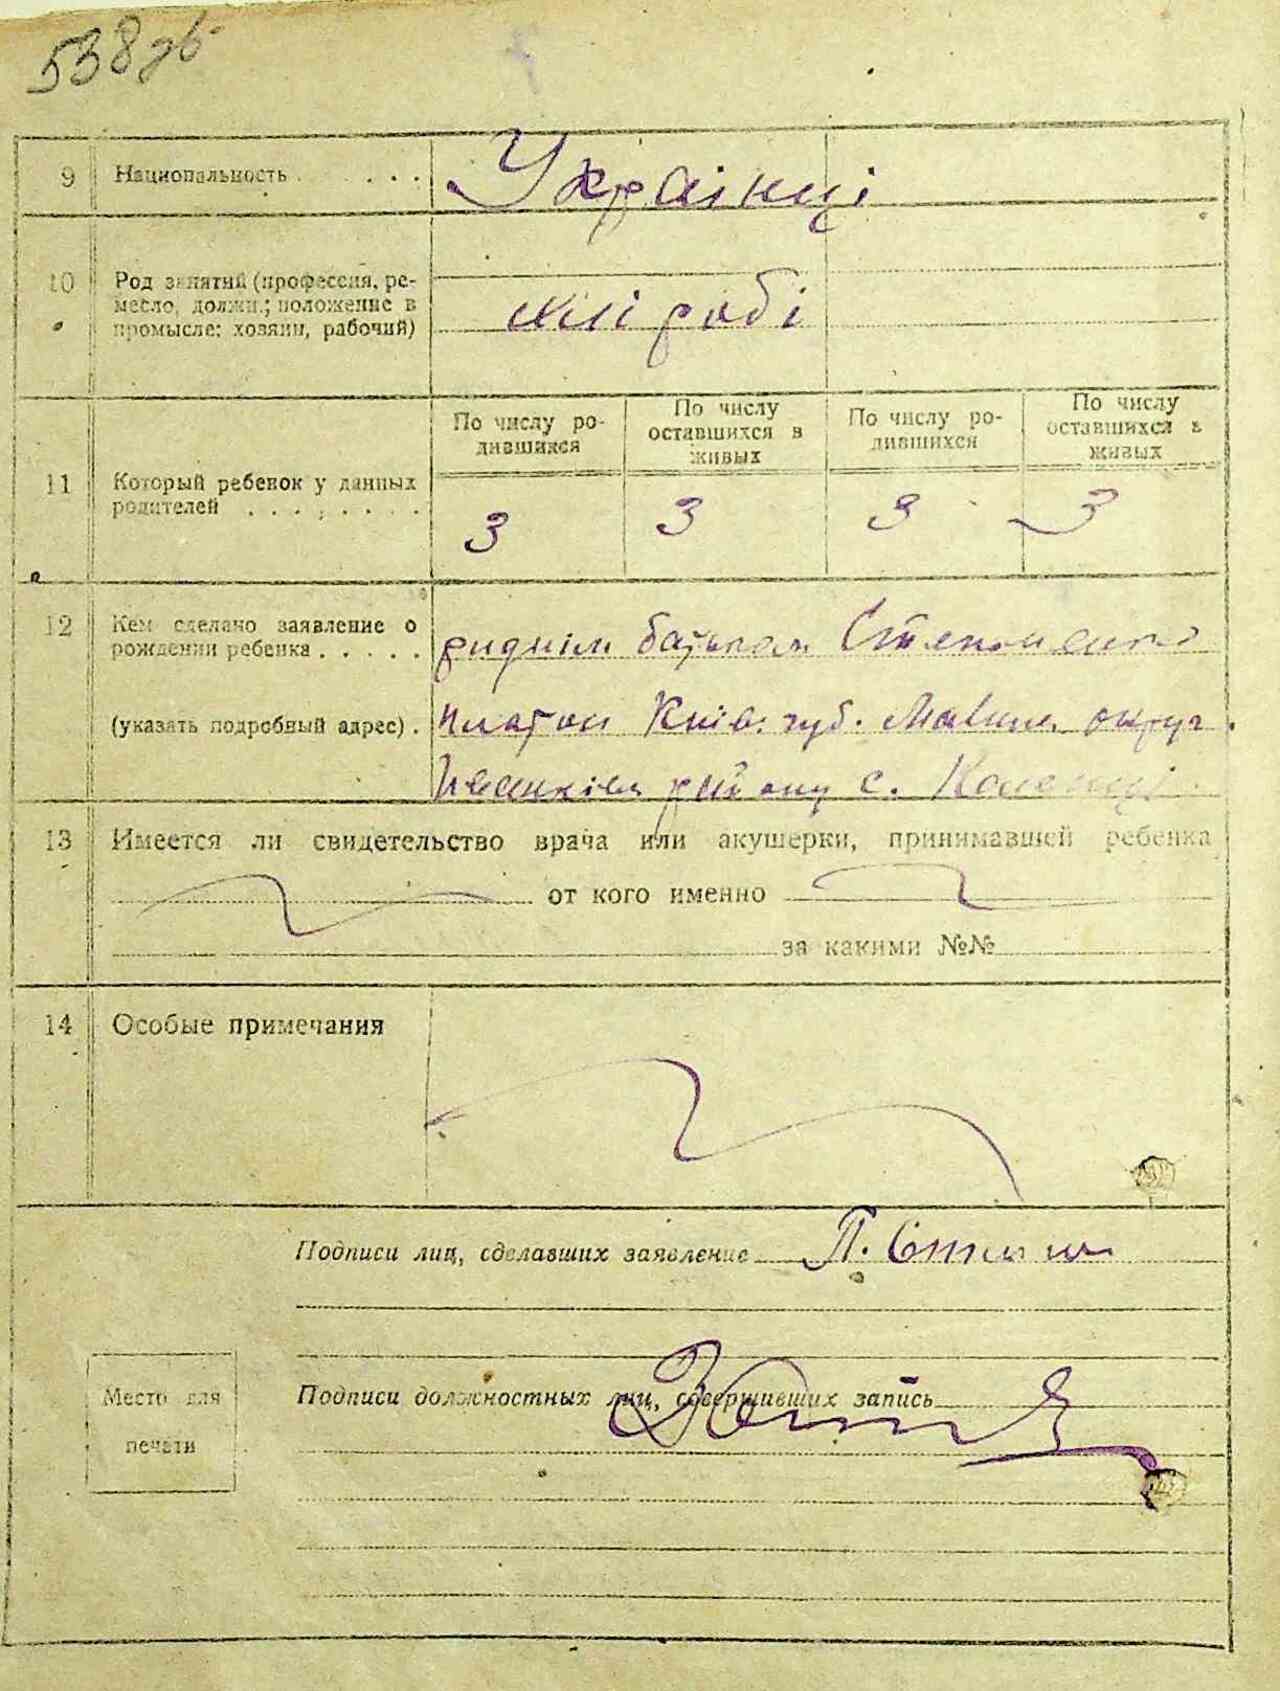 538
9 Национальность . . . . Українці
10 Род занятий (профессия, ре-
месло, должн.; положение в
промысле: хозяин, рабочий)
хлі роб і
По числу ро-
дившихся
По числу
оставшихся в
живых
По числу ро-
дившихся
По числу
оставшихся в
живых
11 Который ребенок у данных
родителей . . . . . . .
3 3 3 3
12 Кем сделано заявление о
рождении ребенка . . . . .
(указать подробный адрес) .
ридним батьком
Платон Київ. губ. округ.
району с.
13 Имеется ли свидетельство врача или акушерки, принимавшей ребенка
от кого именно
за какими №№
14 Особые примечания
Подписи лиц, сделавших заявление П.
Место для
печати
Подписи должностных лиц, совершивших запись